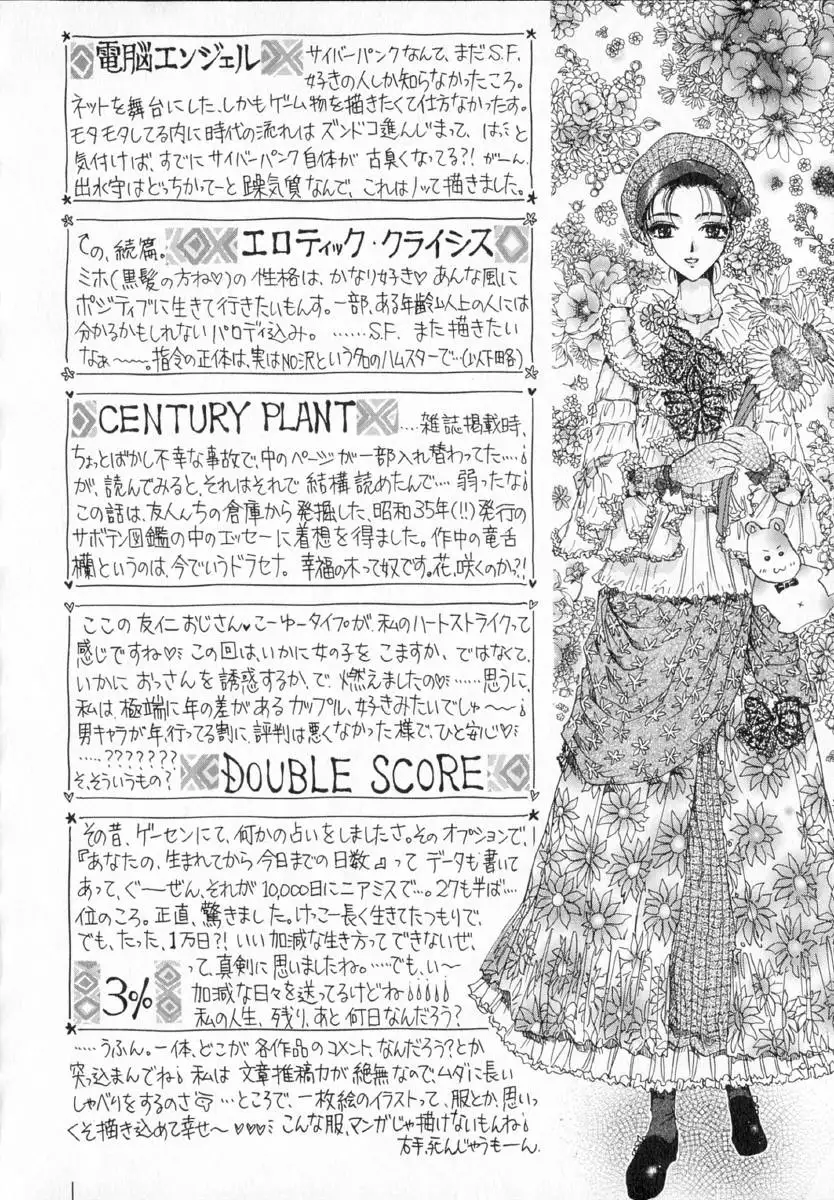 電脳エンジェル サイバーパンクなんて、まだS.F.
好きの人しか知らなかったころ。
ネットを舞台にした、しかもゲーム物を描きたくて仕方なかったす。
モタモタしてる内に時代の流れはズンドコ進んじまって、はっと
気付けば、すでにサイバーパンク自体が古臭くなってる?!がーん。
出水守はどっちかってーと躁気質なんで、これはノッて描きました。
での、続篇。エロティック・クライシス
ミホ(黒髪の方ね♡)の性格は、かなり好き♡あんな風に
ポジティブに生きて行きたいもんす。一部、ある年齢以上の人には
分かるかもしれないパロディ込み。……S.F.また描きたい
なぁ〜〜。指令の正体は、実はNO沢という名のハムスターで…(以下略)
CENTURY PLANT ……雑誌掲載時、
ちょっとばかし不幸な事故で、中のページが一部入れ替わってた…。
が、読んでみると、それはそれで結構読めたんで…弱ったな。
この話は、友人んちの倉庫から発掘した、昭和35年(!!)発行の
サボテン図鑑の中のエッセーに着想を得ました。作中の竜舌
欄というのは、今でいうドラセナ。幸福の木って奴です。花、咲くのか?!
ここの友仁おじさん♥こーゆータイプが、私のハートストライクって
感じですね♡ この回は、いかに女の子をこますか、ではなくて、
いかにおっさんを誘惑するか、で、燃えましたの♡……思うに、
私は、極端に年の差があるカップル、好きみたいでしゅ〜〜。
男キャラが年行ってる割に、評判は悪くなかった様で、ひと安心♡
……???????
そ、そういうもの? DOUBLE SCORE
その昔、ゲーセンにて、何かの占いをしましたさ。そのオプションで、
『あなたの、生まれてから今日までの日数』ってデータも書いて
あって、ぐーぜん、それが10,000日にニアミスで…。27も半ば…
位のころ。正直、驚きました。けっこー長く生きてたつもりで、
でも、たった、1万日?!いい加減な生き方ってできないぜ、
って、真剣に思いましたね。……でも、い〜
3% 加減な日々を送ってるけどね
私の人生、残り、あと何日なんだろう?
……うふん。一体、どこが各作品のコメント、なんだろう?とか
突っ込まんでね。私は文章推稿力が絶無なので、ムダに長い
しゃべりをするのさ …ところで、一枚絵のイラストって、服とか、思いっ
くそ描き込めて幸せ〜♡♡♡ こんな服、マンガじゃ描けないもんね。
右手、死んじゃうもーん。